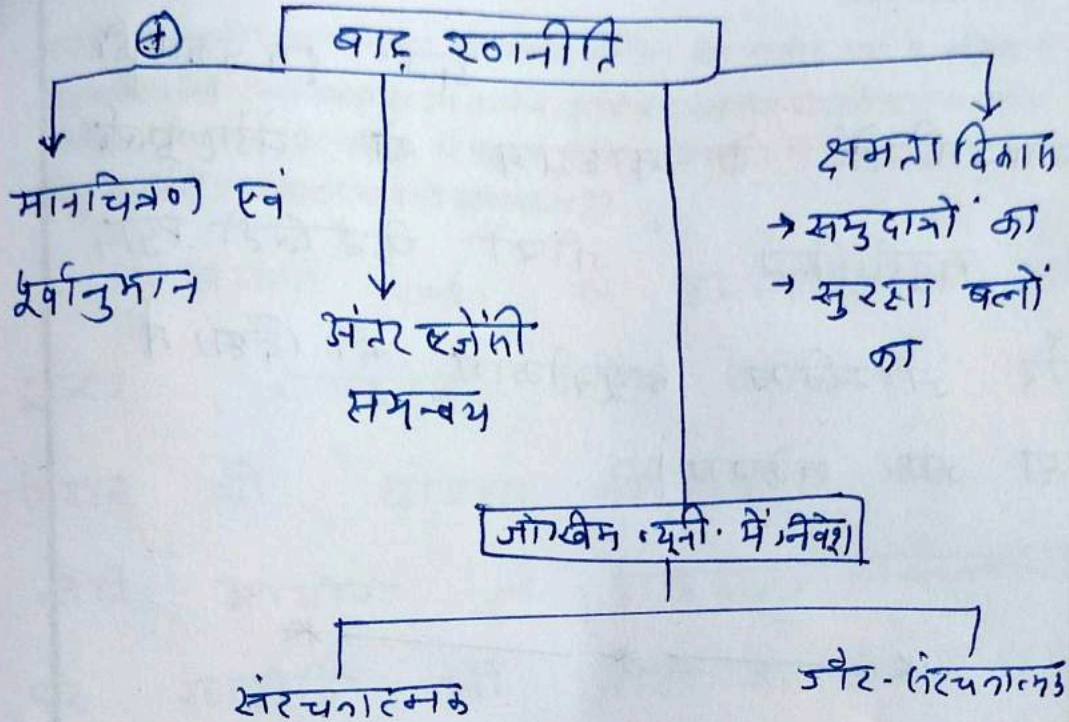 बाढ़ रणनीति
मानचित्रण एवं
पूर्वानुमान
अंतर एजेंसी
समन्वय
क्षमता विकास
→ समुदायों का
→ सुरक्षा बलों
का
जोखिम न्यूनी. में निवेश
संरचनात्मक
गैर-संरचनात्मक